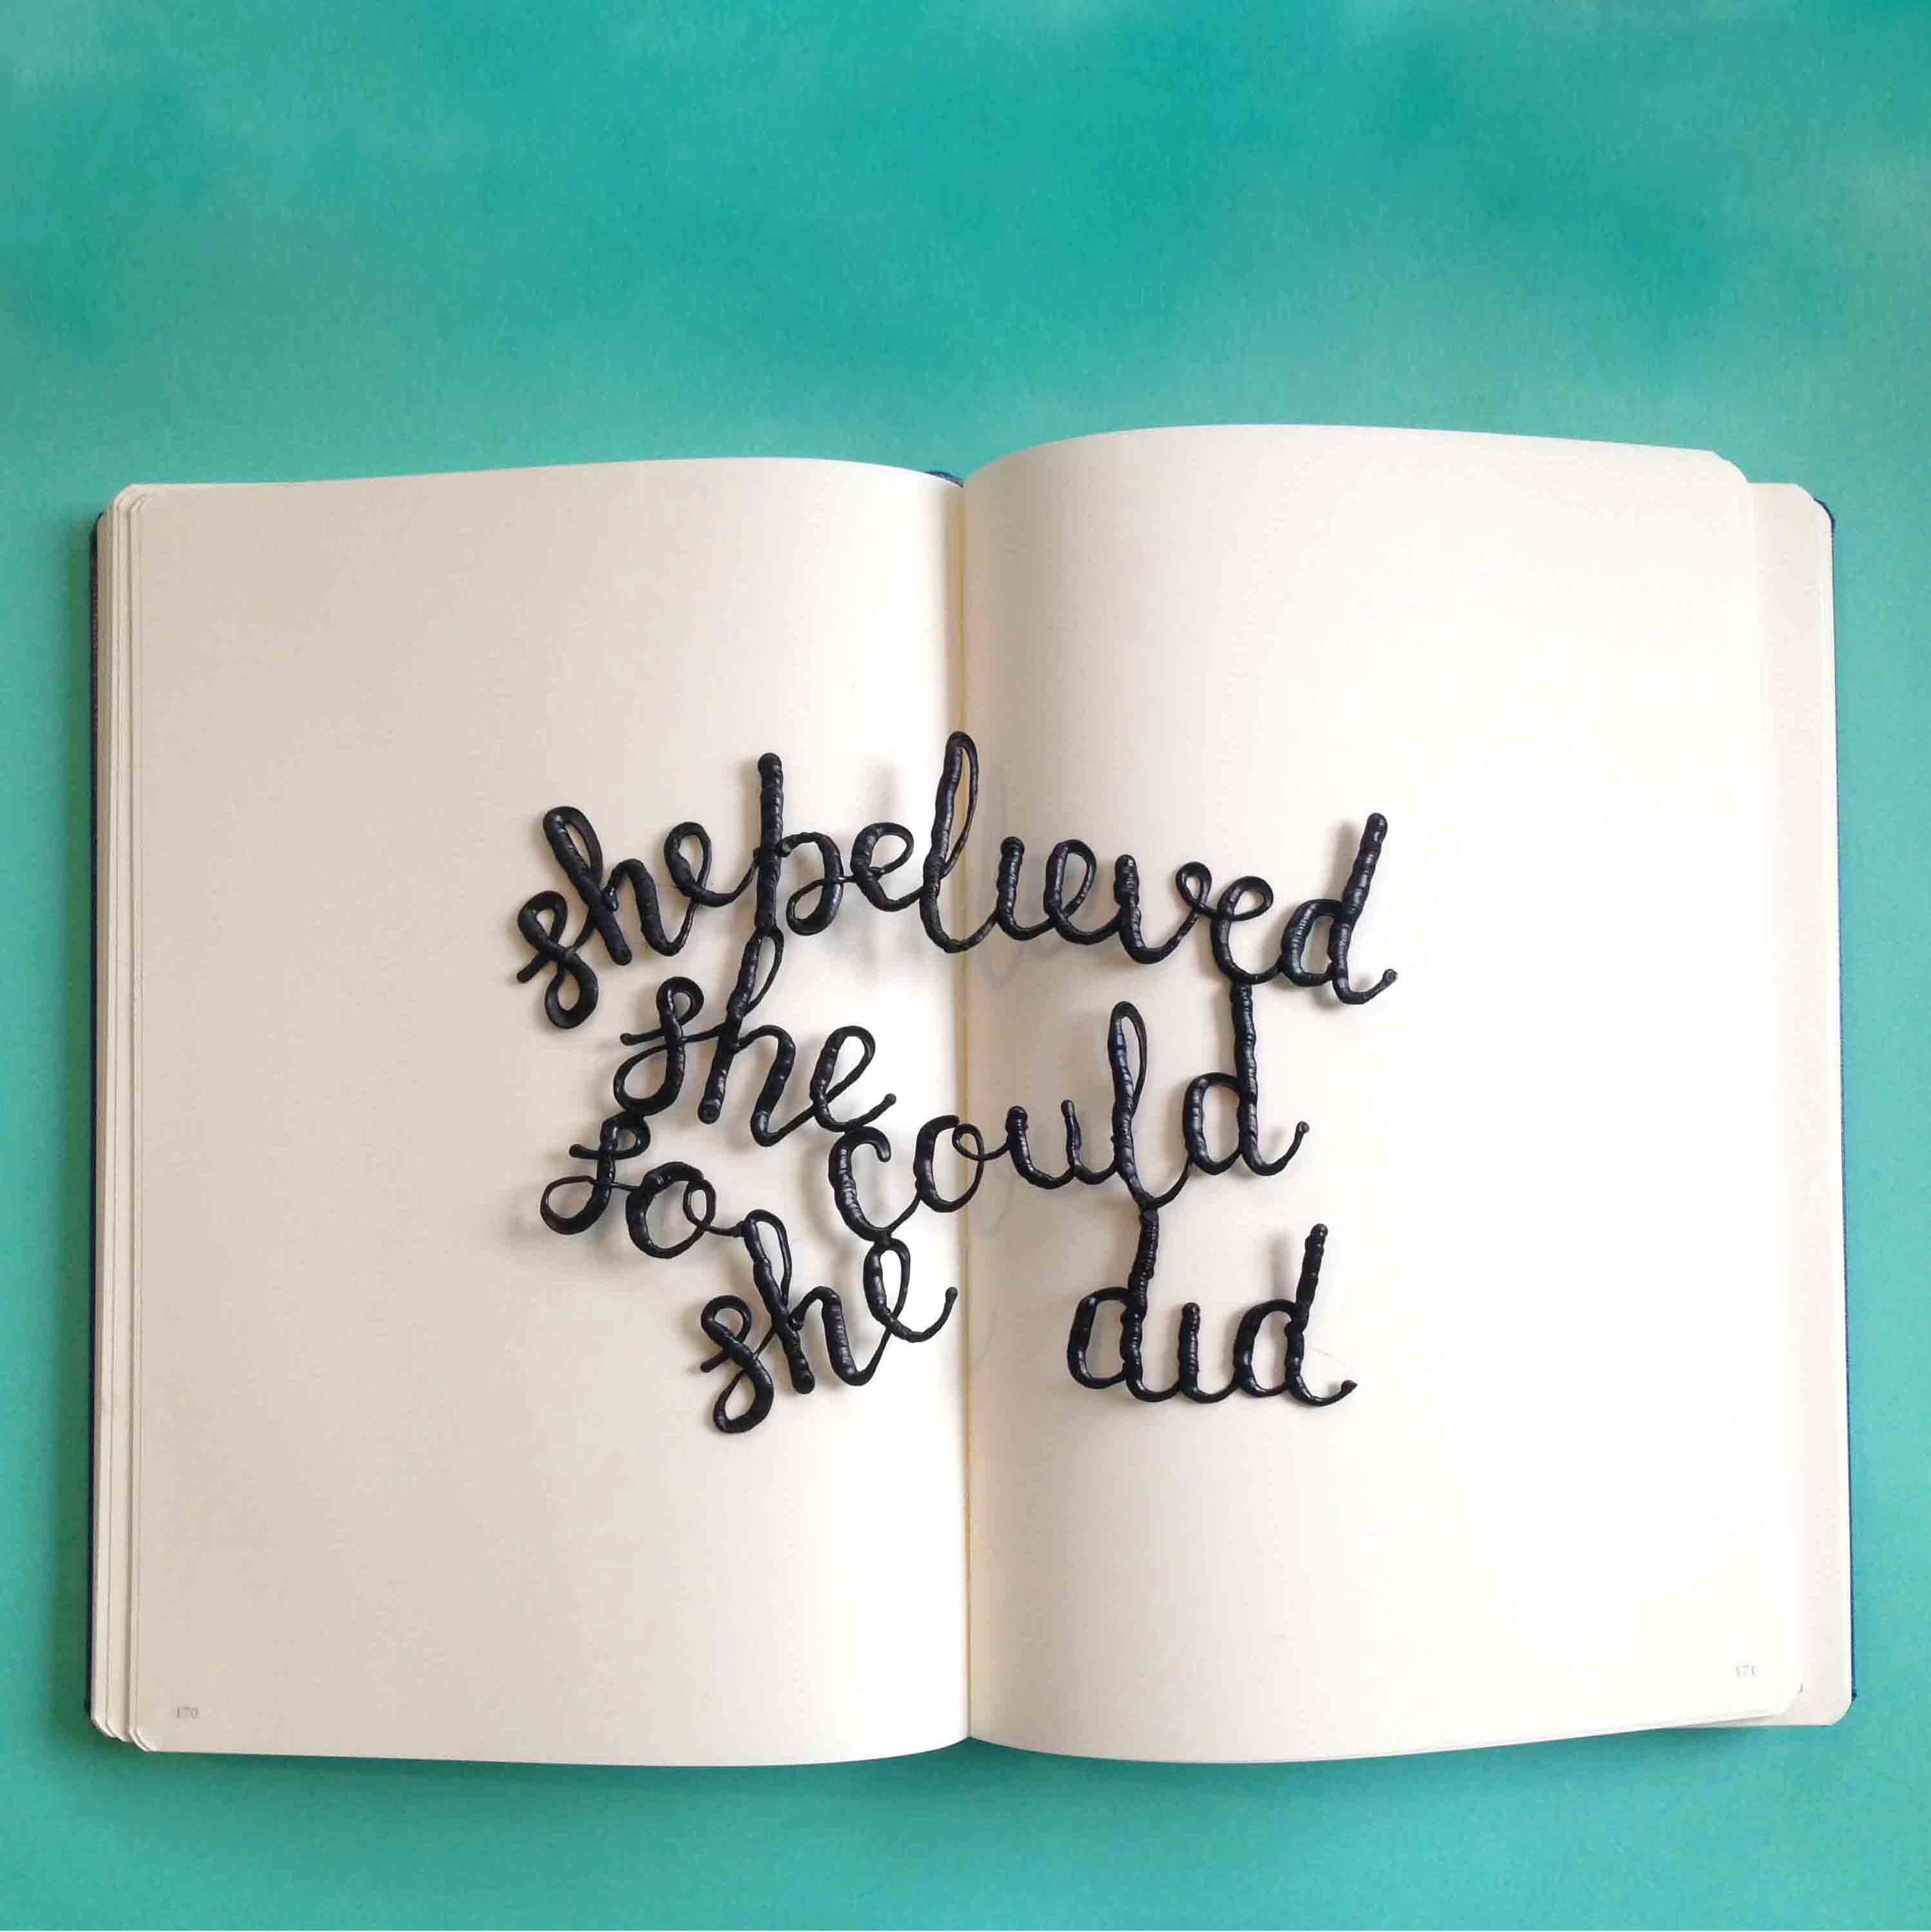 she believed
she could
so
she did
170
171